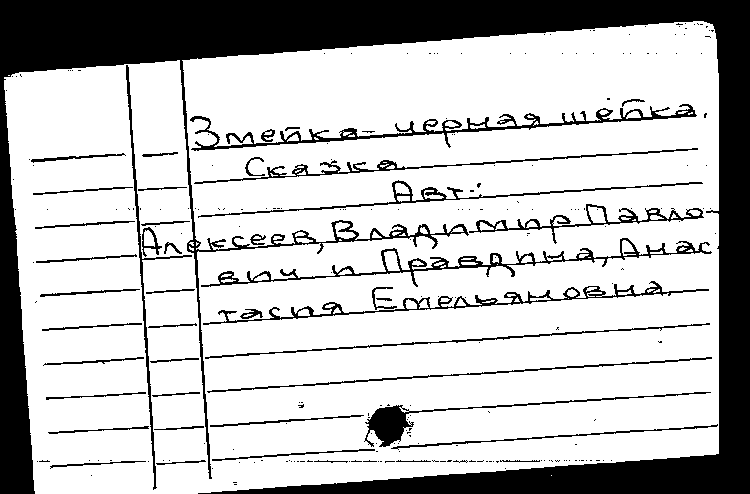 Змейка-черная шейка.
Сказка.
Авт.:
Алексеев, Владимир Павло-
вич и Правдина, Анас-
тасия Емельяновна.